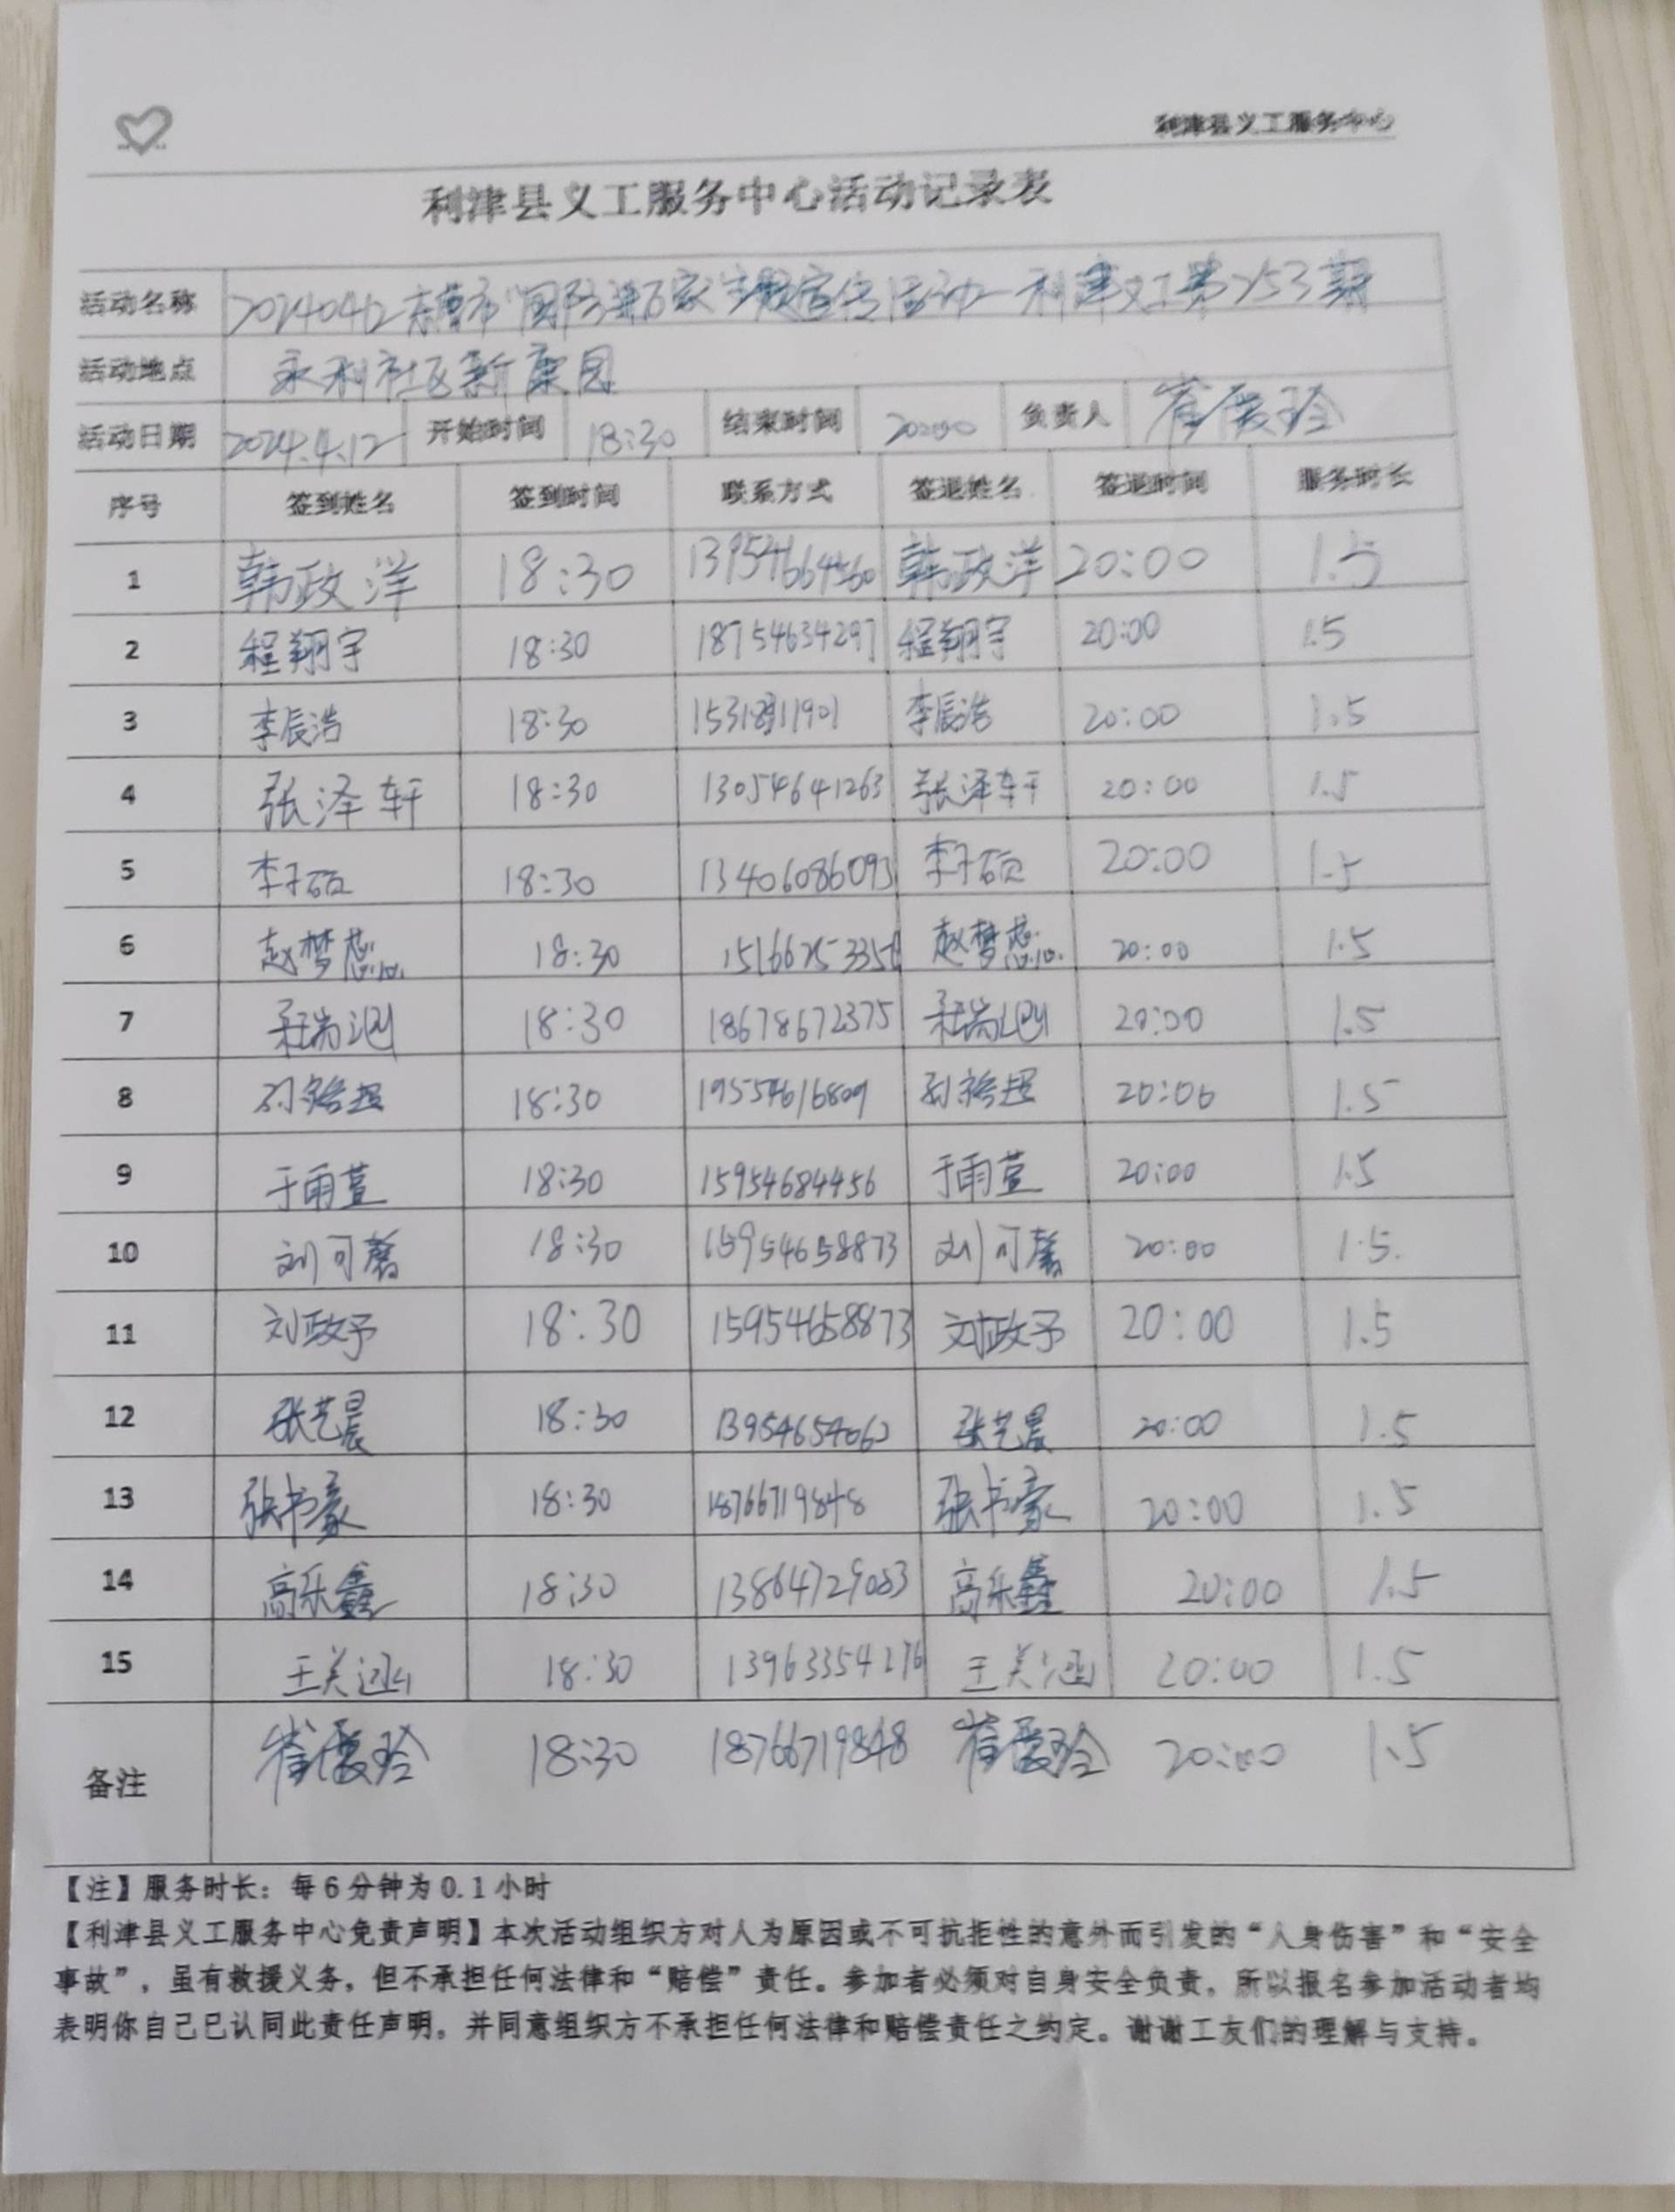 利津县义工服务中心
利津县义工服务中心活动记录表
活动名称 20240412东营市“国防进万家”主题宣传活动—利津义工第253期
活动地点 永利社区新康园
活动日期 2024.4.12 开始时间 18:30 结束时间 20:00 负责人 崔爱玲
序号 签到姓名 签到时间 联系方式 签退姓名 签退时间 服务时长
1 韩政洋 18:30 韩政洋 20:00 1.5
2 程翔宇 18:30 18754634297 程翔宇 20:00 1.5
3 李辰浩 18:30 李辰浩 20:00 1.5
4 张泽轩 18:30 13054641263 张泽轩 20:00 1.5
5 李子硕 18:30 13406086093 李子硕 20:00 1.5
6 赵梦蕊 18:30 赵梦蕊 20:00 1.5
7 18:30 18678672375 20:00 1.5
8 18:30 19554616809 20:00 1.5
9 于雨萱 18:30 15954684456 于雨萱 20:00 1.5
10 刘可馨 18:30 15954658873 刘可馨 20:00 1.5
11 刘政予 18:30 15954658873 刘政予 20:00 1.5
12 张艺晨 18:30 张艺晨 20:00 1.5
13 张书豪 18:30 18766719848 张书豪 20:00 1.5
14 高乐鑫 18:30 13864729083 高乐鑫 20:00 1.5
15 王美涵 18:30 13963354276 王美涵 20:00 1.5
备注 崔爱玲 18:30 18766719848 崔爱玲 20:00 1.5
【注】服务时长：每6分钟为0.1小时
【利津县义工服务中心免责声明】本次活动组织方对人为原因或不可抗拒性的意外而引发的“人身伤害”和“安全
事故”，虽有救援义务，但不承担任何法律和“赔偿”责任。参加者必须对自身安全负责，所以报名参加活动者均
表明你自己已认同此责任声明，并同意组织方不承担任何法律和赔偿责任之约定。谢谢工友们的理解与支持。